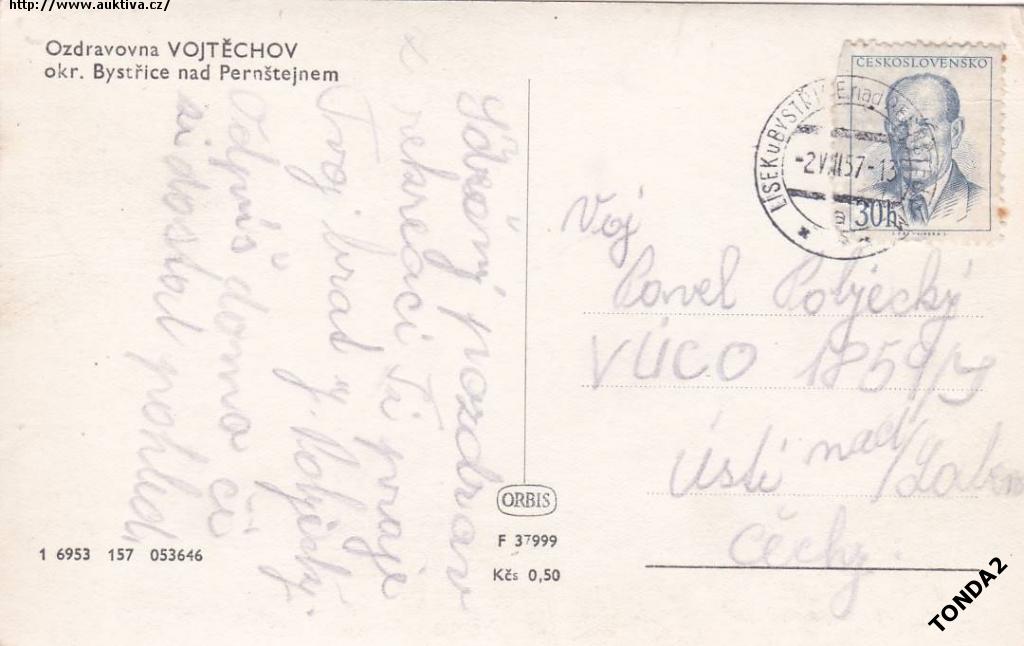 http://www.auktiva.cz/
Ozdravovna VOJTĚCHOV
okr. Bystřice nad Pernštejnem
Srdečný pozdrav
z rekreaci Ti praje
Tvoj brat J. Polječký.
Odpíš domov či
si dostal pohled
ČESKOSLOVENSKO
30h
LÍSEK u BYSTŘICE nad
-2.VII.57-13
Voj
Pavel Polječký
VÚCO 1859/M
Ústí nad/Labem
Čechy.
ORBIS
F 37999
Kčs 0,50
1 6953 157 053646
TONDA2